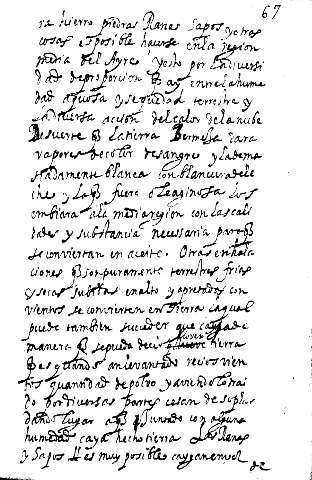 67
ra hierro piedras Ranas Sapos y otras
cosas es posible haverse en la region
media del Ayre y esto por la diversi
dad de proporcion q̃ ay entre la hume
dad aquosa y sequedad terrestre y
la diversa acción del calor de la nube
De suerte q̃ la tierra Bermeja dara
vapores de color de sangre y la dema
siadamente blanca con blancura de le
che y la q̃ fuere oleaginosa los
embiara a la media region con las cali
dades y substancia necessaria para q̃
se conviertan en aceite. Otras exhala
ciones q̃ son puramente terrestres frias
y secas subidas en alto y apretadas con
vientos se convierten en tierra la qual
puede tambien suceder que cayga de
manera q̃ se pueda decir llover tierra
q̃ es quando an levantado recios vien
tos quantidad de polvo y aviendolo trai
do por diversas partes cesan de soplar
dando lugar a q̃ juntado con alguna
humedad cayga hecho tierra Las Ranas
y Sapos es muy posible caygan en vol
de